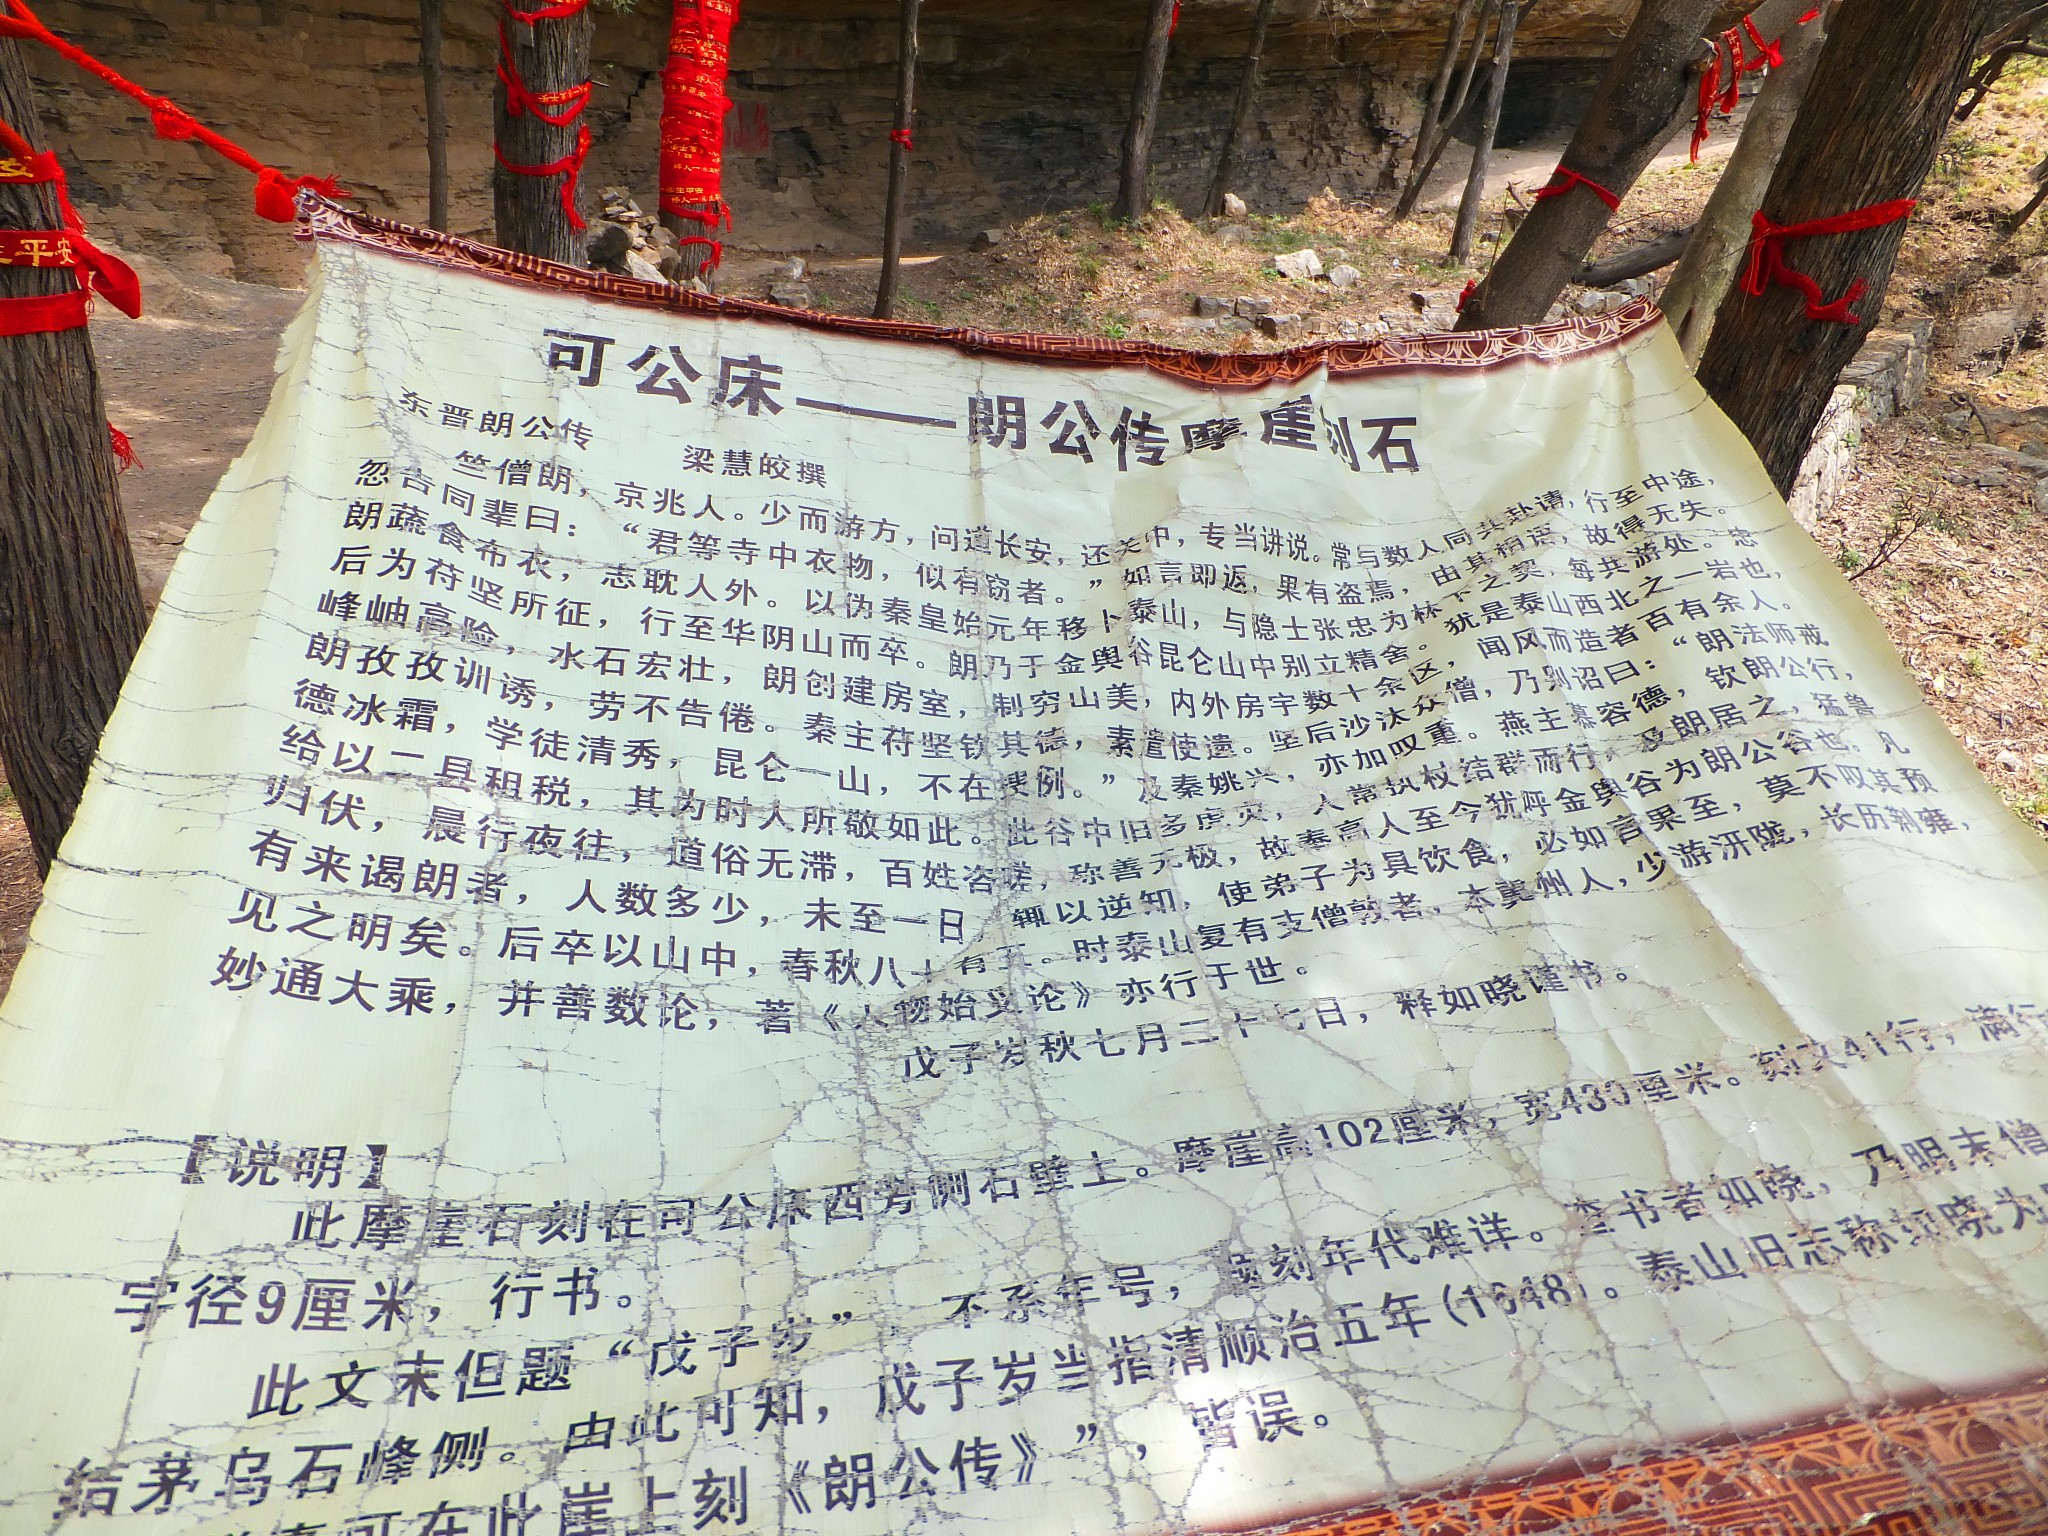 可公床——朗公传摩崖刻石
东晋朗公传 梁慧皎撰
竺僧朗，京兆人。少而游方，问道长安，还关中，专当讲说。常与数人同共赴请，行至中途，
忽告同辈曰：“君等寺中衣物，似有窃者。”如言即返，果有盗焉，由其相语，故得无失。
朗蔬食布衣，志耽人外。以伪秦皇始元年移卜泰山，与隐士张忠为林下之契，每共游处。忠
后为苻坚所征，行至华阴山而卒。朗乃于金舆谷昆仑山中别立精舍。犹是泰山西北之一岩也，
峰岫高险，水石宏壮，朗创建房室，制穷山美，内外房宇数十余区，闻风而造者百有余人。
朗孜孜训诱，劳不告倦。秦主苻坚钦其德，素遣使遗。坚后沙汰众僧，乃别诏曰：“朗法师戒
德冰霜，学徒清秀，昆仑一山，不在搜例。”及秦姚兴，亦加叹重。燕主慕容德，钦朗公行，
给以二县租税，其为时人所敬如此。此谷中旧多虎灾，人常执杖结群而行，及朗居之，猛兽
归伏，晨行夜往，道俗无滞，百姓咨嗟，称善无极，故奉高人至今犹呼金舆谷为朗公谷也。凡
有来谒朗者，人数多少，未至一日 辄以逆知，使弟子为具饮食，必如言果至，莫不叹其预
见之明矣。后卒以山中，春秋八十有五。时泰山复有支僧敦者，本冀州人，少游汧陇，长历荆雍，
妙通大乘，并善数论，著《人物始义论》亦行于世。
戊子岁秋七月二十七日，释如晓谨书。
【说明】
此摩崖石刻在可公床西旁侧石壁上。摩崖高102厘米，宽430厘米。刻文41行，满行
字径9厘米，行书。
此文末但题“戊子岁”，不系年号，镌刻年代难详。查书者如晓，乃明末僧
结茅乌石峰侧。由此可知，戊子岁当指清顺治五年(1648)。泰山旧志称如晓为
可在此崖上刻《朗公传》”，皆误。
生平安
好人一生平安